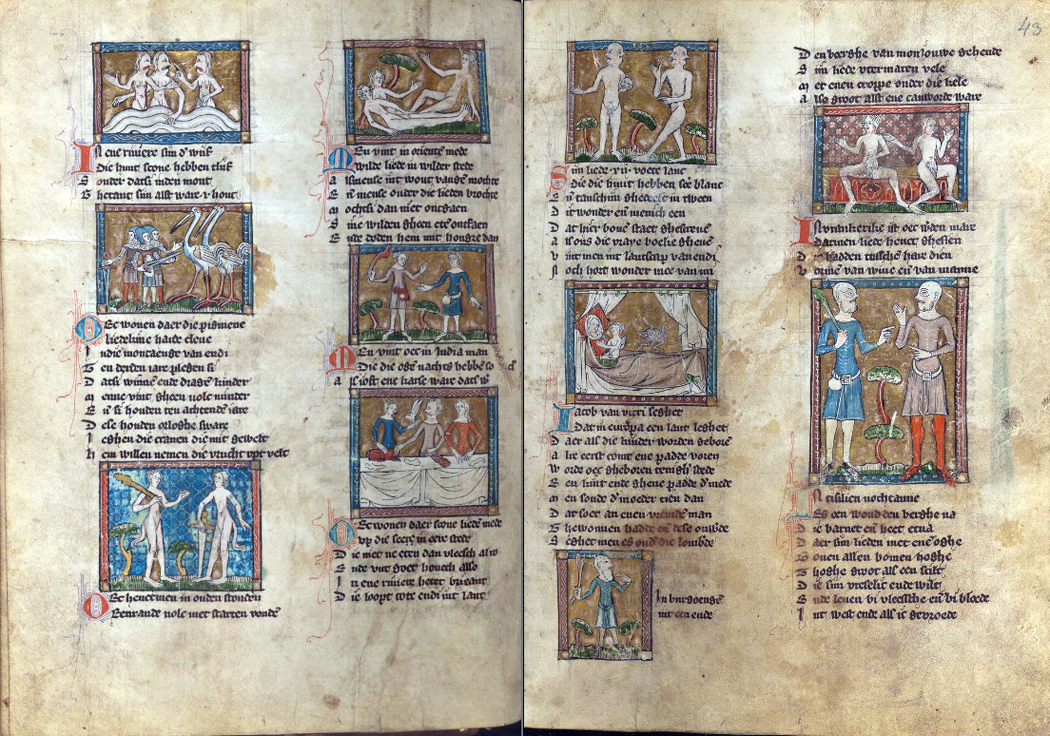 In ene riviere sijn oec wijf
Die huut scone hebben tlijf
Sonder datsi inden mont
Ghetant sijn alst ware .i. hont
Et wonen daer die pigmene
liedekine harde clene
Indie montaenge van endi
Ten derden iare pleghen si
Datsi winnen ende draghen kinder
menne vint gheen volc minder
En si houden ten achtenden iare
Dese houden orloghe sware
Ieghen die cranen die mit gewelt
hem willen nemen die vrucht upt velt
Et heuetmen in ouden stonden
Eenrande volc met starten vonden
Men vint in oriente mede
wilde liede in wilder stede
Alsmense int wout vangen mochte
En mense onder die lieden brochte
mochtsi dan niet ontgaen
Sine wilden gheen ete ontfaen
Ende doden hem mit hongre dan
Men vint oec in India man
Die die oghen nachts hebben so
Als iofte ene karse ware
Et wonen daer scone liede mede
vp die see in ere stede
Die niet ne eten dan vleesch also
Ende vut goet honech also
In ene riviere hetet brixant
Die loopt tote endi int lant
Sijn liede .xii. voete lanc
die die huut hebben seer blanc
En taenschijn ghedeelt in tween
Dit wonder en menich een
Dat hier boven staet ghescreven
Als ons die vraye boeke gheven
Vintmen int lantscap van endi
Noch hort wonder mee van mi
Jacob van vitri seghet
Dat in europa een lant leghet
Daer als die kinder worden gheboren
Alre eerst comt ene padde voren
Worde oec gheboren tenigher stede
Een kint ende gheene padde mede
men soude die moeder tien dan
Dat soet an enen vremden man
Ghewonnen hadde
Seghet men
In bourgoengen
int een ende
Den berghe van moniouwe gehende
Sijn liede vtermaten vele
met enen croppe onder die kele
Also groot alst ene cauworde ware
In vrankerike ist oec iden mare
Datmen liede hevet ghesien
Die hadden tusschen hare dien
vorme van wive en van manne
In cisilien nochtanne
Es een wonden berghe na
Die barnet en heet etna
Daer sijn lieden met ene oghe
Boven allen bomen hoghe
Thoghe groot als een scilt
Die sijn vreselic ende wilt
Ende leven bi vleessche en bi bloede
Int west ende als ic ghevroede
43